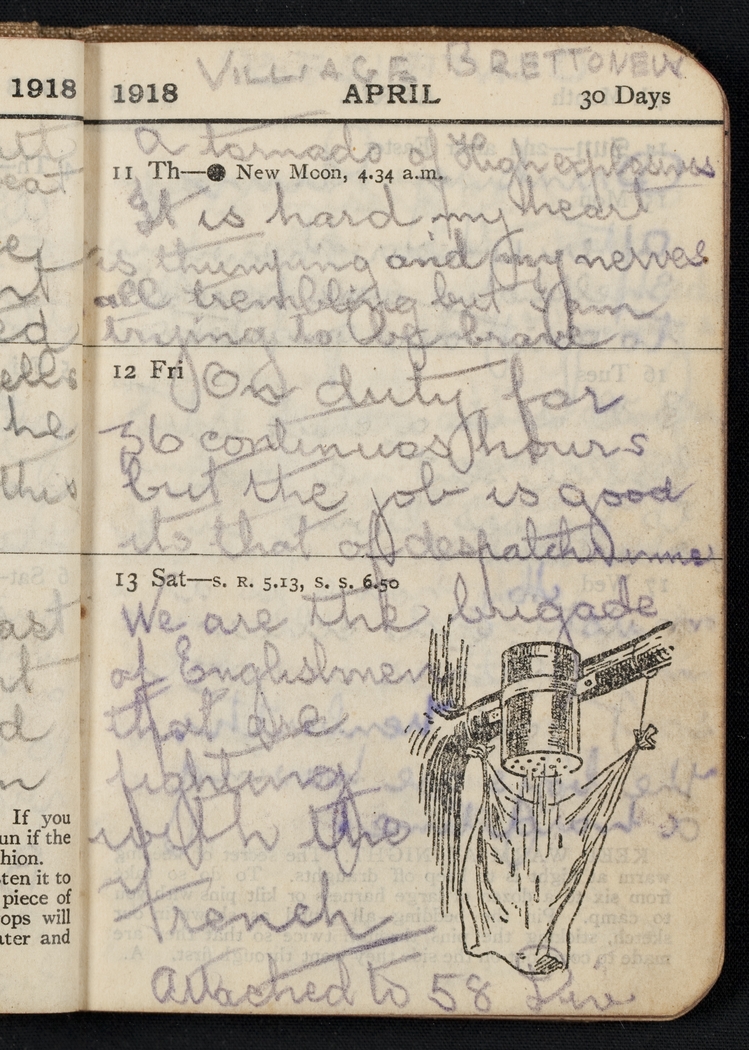 VILLIAGE BRETTONEUX
1918
1918 APRIL 30 Days
A tornado of High explosives
11 Th—● New Moon, 4.34 a.m.
It is hard my heart
is thumping and my nerves
all trembling but I am
trying to be brave
12 Fri On duty for
36 continuos hours
but the job is good
its that of despatch
13 Sat—S. R. 5.13, S. S. 6.50
We are the brigade
of Englishmen
that are
fighting
with the
French
Attached to 58
ells
he
this
If you
un if the
hion.
ten it to
piece of
ops will
ater and